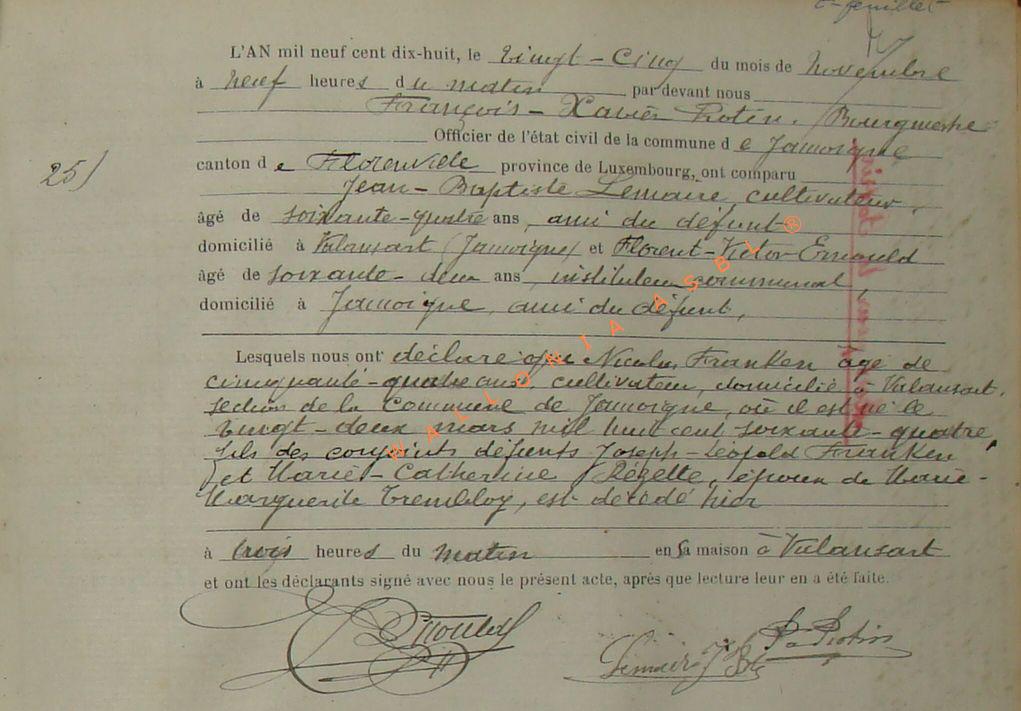 2e feuillet
L'AN mil neuf cent dix-huit, le vingt-cinq du mois de Novembre
à neuf heures du matin par devant nous
François-Xavier Protin, Bourgmestre
Officier de l'état civil de la commune de Jamoigne
canton de Florenville province de Luxembourg, ont comparu
25)
Jean-Baptiste Lemaire, cultivateur,
âgé de soixante-quatre ans, ami du défunt
domicilié à Valansart (Jamoigne) et Florent-Victor Ernould
âgé de soixante-deux ans, instituteur communal,
domicilié à Jamoigne, ami du défunt,
Lesquels nous ont déclaré que Nicolas Franken âgé de
cinquante-quatre ans, cultivateur, domicilié à Valansart,
section de la commune de Jamoigne, où il est né le
vingt-deux mars mil huit cent soixante-quatre,
fils des conjoints défunts Joseph-Léopold Franken
et Marie-Catherine époux de Marie-
Marguerite Trembloy, est décédé hier
à trois heures du matin en sa maison à Valansart
et ont les déclarants signé avec nous le présent acte, après que lecture leur en a été faite.
Ernould
Lemaire J Bte
Protin
WALLONIA ASBL®